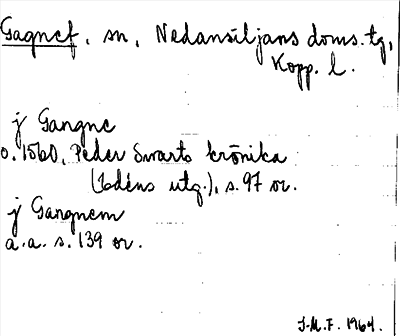 Gagnef, sn, Nedansiljans doms. tg,
Kopp. l.
j Gangne
o. 1560, Peder Swarts krönika
(Edéns utg.), s. 97 or.
j Gangnem
a.a. s. 139 or.
J.M.F. 1964.